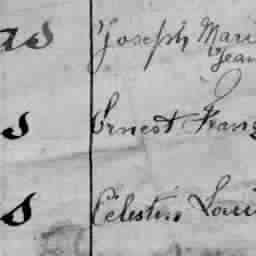 as Joseph Mari
Jean
s Ernest Franç
s Célestin Loui